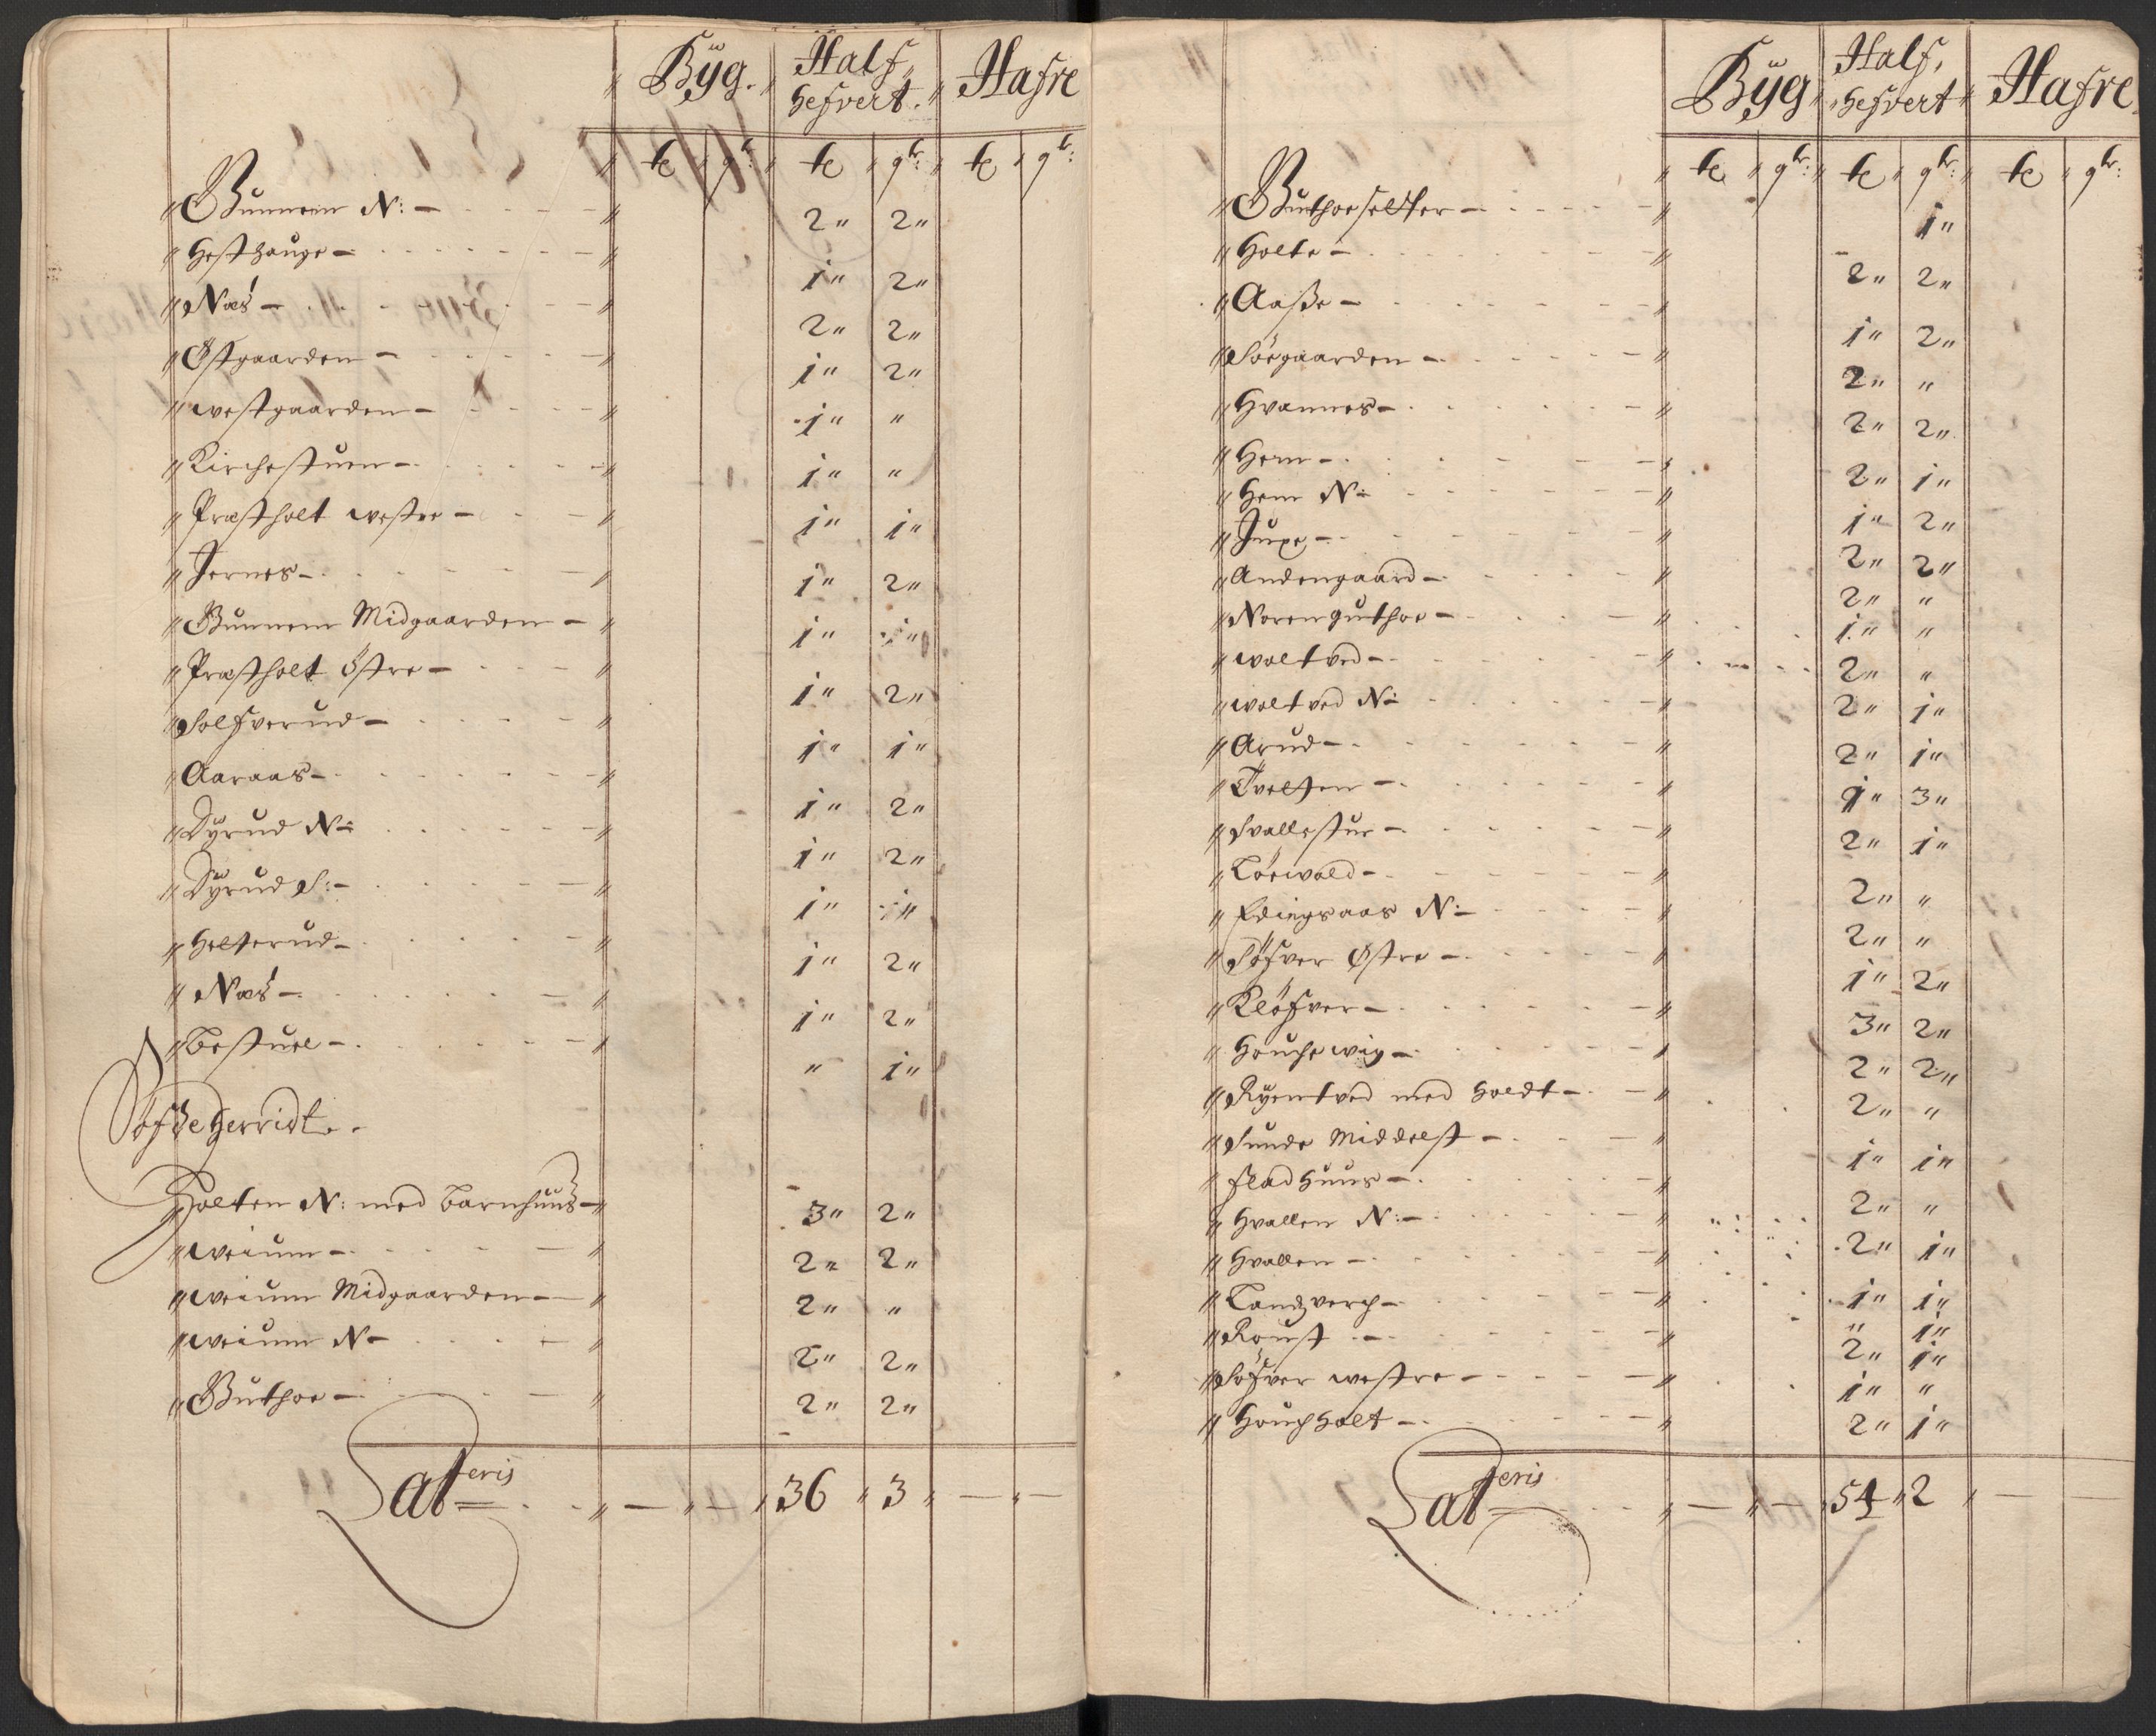 Byg. Half, hefvert. Hafre
te qr: te qr: te qr:
Bunnem N: 2 2
Hesthauge 1 2
Næs 2 2
Østgaarden 1 2
westgaarden 1 "
Kirchestuen 1 "
Præstholt westre 1 1
Jernes 1 2
Bunnem Midgaarden 1 1
Præstholt östre 1 2
Solfverud 1 1
Aaraas 1 2
Dÿrud N: 1 2
Dÿrud S: 1 1
Helterud 1 2
Næs 1 2
Bestuel " 1
Söfde Herridt.
Holten N: med Barnhuus 3 2
weium 2 2
weium Midgaarden 2 "
weium N 2 2
Buthoe 2 2
Lateris 36 3
Byg Half, hefvert Hafre
te qr: te qr: te qr:
Buthoeselter 1
Holte 2 2
Aaße 1 2
Söegaarden 2 "
Hvannes 2 2
Hem 2 1
Hem N: 1 2
Juxe 2 2
Andengaard 2 "
Noren guthoe 1 "
woltved 2 "
woltved N: 2 1
Arud 2 1
Tvelten 1 3
Svallestue 2 1
Löewold 2 "
Edingsaas N: 2 "
Söfver Østre 1 2
Klöfver 3 2
Houchewig 2 2
Ryentved med Holdt 2 "
Sunde Middelst 1 1
fladhuus 2 "
Hvallen N: 2 1
Hvallen 1 1
Landzverch " 1
Roust 2 1
Söfver westre 1 "
Hougholt 2 1
Lateris 54 2